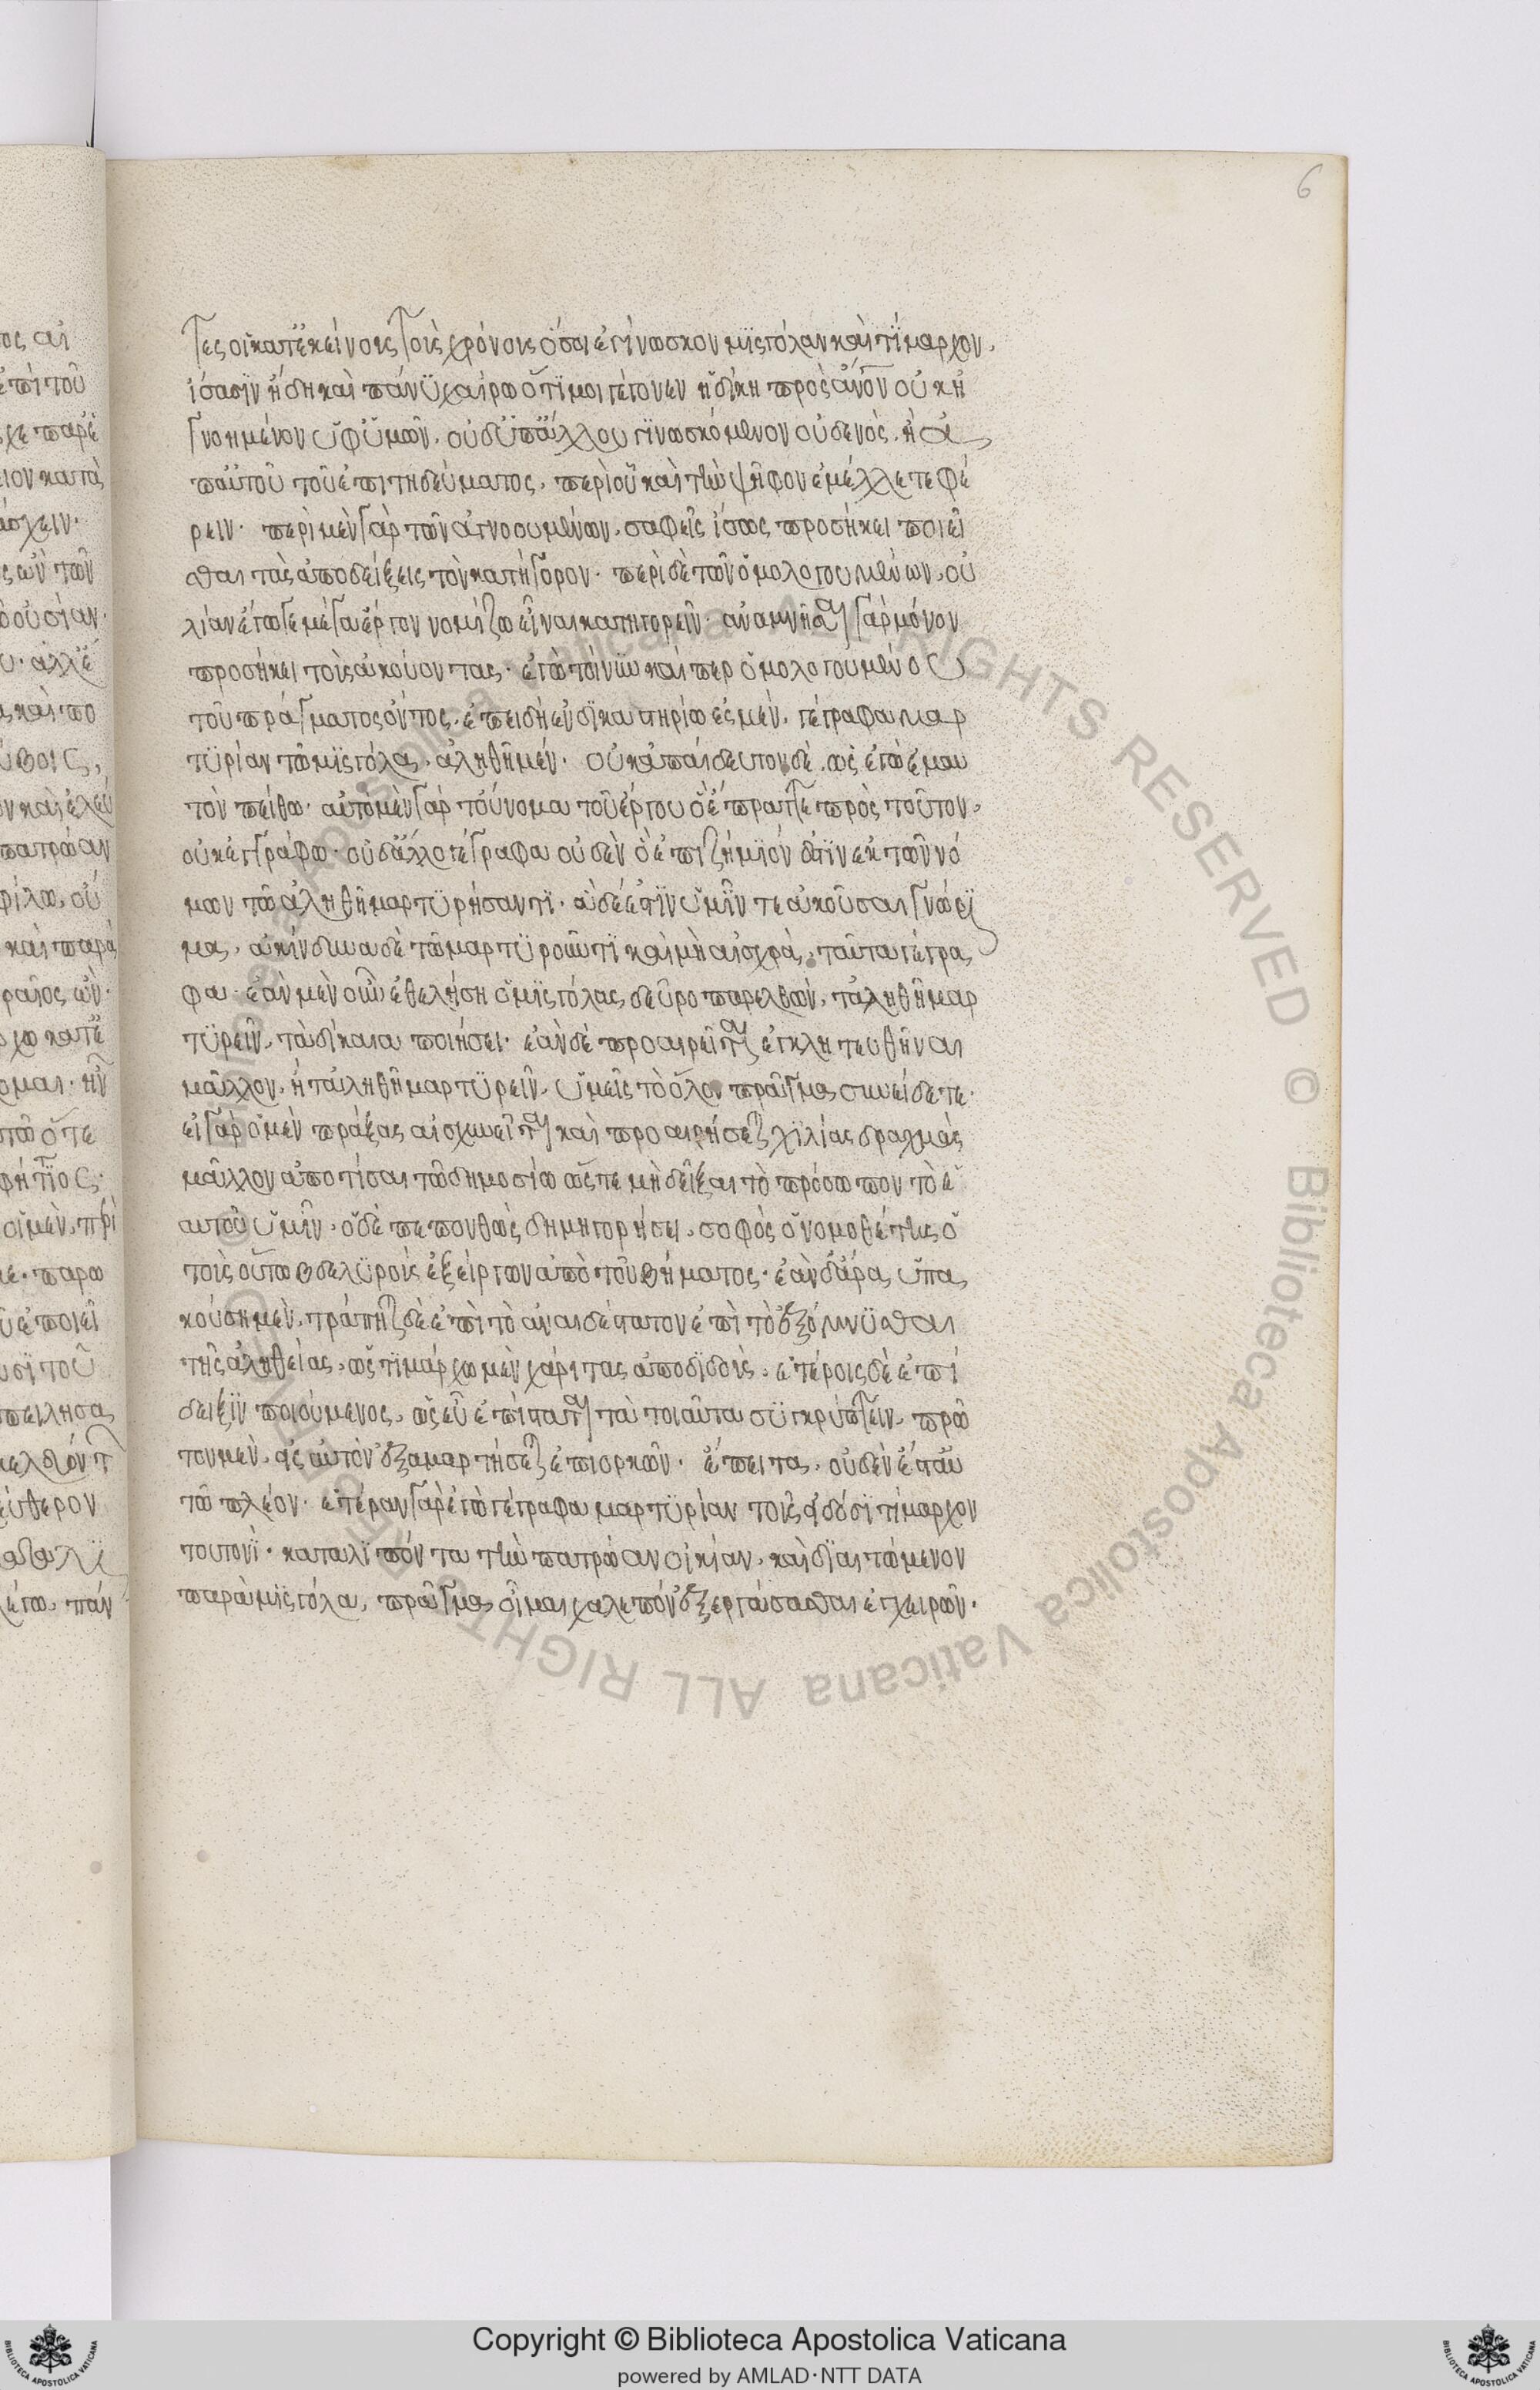 6
τες οἳ κατ' ἐκείνους τοὺς χρόνους ὅσοι ἐγίνωσκον μισγόλαν καὶ τίμαρχον,
ἴσασιν ἤδη καὶ πάνυ χαίρω ὅτι μοι γέγονεν ἡ δίκη πρὸς ἄνον οὐκ ἠ
γνοημένον ὑφ' ὑμῶν, οὐδ' ὑπ' ἄλλου γινωσκόμενον οὐδενὸς, ἢ ἀ
π' αὐτοῦ τοῦ ἐπιτηδεύματος, περὶ οὗ καὶ τὴν ψῆφον ἐμέλλετε φέ
ρειν. περὶ μὲν γὰρ τῶν ἀγνοουμένων, σαφεῖς ἴσως προσήκει ποιεῖ
σθαι τὰς ἀποδείξεις τὸν κατήγορον. περὶ δὲ τῶν ὁμολογουμένων, οὐ
λίαν ἔγωγε μέγα ἔργον νομίζω εἶναι κατηγορεῖν. ἀναμνῆσαι γὰρ μόνον
προσήκει τοὺς ἀκούοντας. ἐγὼ τοίνυν καίπερ ὁμολογουμένου
τοῦ πράγματος ὄντος, ἐπειδὴ ἐν δικαστηρίω ἐσμὲν, γέγραφα μαρ
τυρίαν τῶ μισγόλα, ἀληθῆ μέν. οὐκ ἀπαίδευτον δὲ, ὡς ἐγὼ ἐμαυ
τὸν πείθω. αὐτὸ μὲν γὰρ τοὔνομα τοῦ ἔργου ὃ ἔπραττε πρὸς τοῦτον,
οὐκ ἐγγράφω. οὐδ' ἄλλο γέγραφα οὐδὲν ὃ ἐπιζήμιόν ἐστιν ἐκ τῶν νό
μων τῶ ἀληθῆ μαρτυρήσαντι. ἃ δέ ἐστιν ὑμῖν τε ἀκοῦσαι γνώρι
μα, ἀκίνδυνα δὲ τῶ μαρτυροῦντι καὶ μὴ αἰσχρὰ, ταῦτα γέγρα
φα. ἐὰν μὲν οὖν ἐθελήση ὁ μισγόλας δεῦρο παρελθὼν, τἀληθῆ μαρ
τυρεῖν, τὰ δίκαια ποιήσει. ἐὰν δὲ προαιρεῖται ἐγκλητευθῆναι
μᾶλλον, ἢ τἀληθῆ μαρτυρεῖν, ὑμεῖς τὸ ὅλον πρᾶγμα συνείδετε.
εἰ γὰρ ὁ μὲν πράξας αἰσχυνεῖται καὶ προαιρήσεται χιλίας δραχμὰς
μᾶλλον ἀποτίσαι τῶ δημοσίω ὥστε μὴ δεῖξαι τὸ πρόσωπον τὸ ἑ
αυτοῦ ὑμῖν, ὁ δὲ πεπονθὼς δημηγορήσει, σοφὸς ὁ νομοθέτης ὁ
τοὺς οὕτω βδελυροὺς ἐξείργων ἀπὸ τοῦ βήματος. ἐὰν δ' ἄρα ὑπα
κούση μὲν, τράπηται δὲ ἐπὶ τὸ ἀναιδέστατον ἐπὶ τὸ ἐξόμνυσθαι
τῆς ἀληθείας, ὡς τιμάρχω μὲν χάριτας ἀποδιδοὺς, ἑτέροις δὲ ἐπί
δειξιν ποιούμενος, ὡς εὖ ἐπίσταται τὰ τοιαῦτα συγκρύπτειν, πρῶ
τον μὲν, εἰς αὑτὸν ἐξαμαρτήσεται ἐπιορκῶν. ἔπειτα, οὐδὲν ἔσται αὐ
τῶ πλέον. ἑτέραν γὰρ ἐγὼ γέγραφα μαρτυρίαν τοῖς εἰδόσι τίμαρχον
τουτονὶ. καταλιπόντα τὴν πατρώαν οἰκίαν, καὶ διαιτώμενον
παρὰ μισγόλα, πρᾶγμα οἶμαι χαλεπὸν ἐξεργάσασθαι ἐγχειρῶν.
Copyright © Biblioteca Apostolica Vaticana
powered by AMLAD·NTT DATA